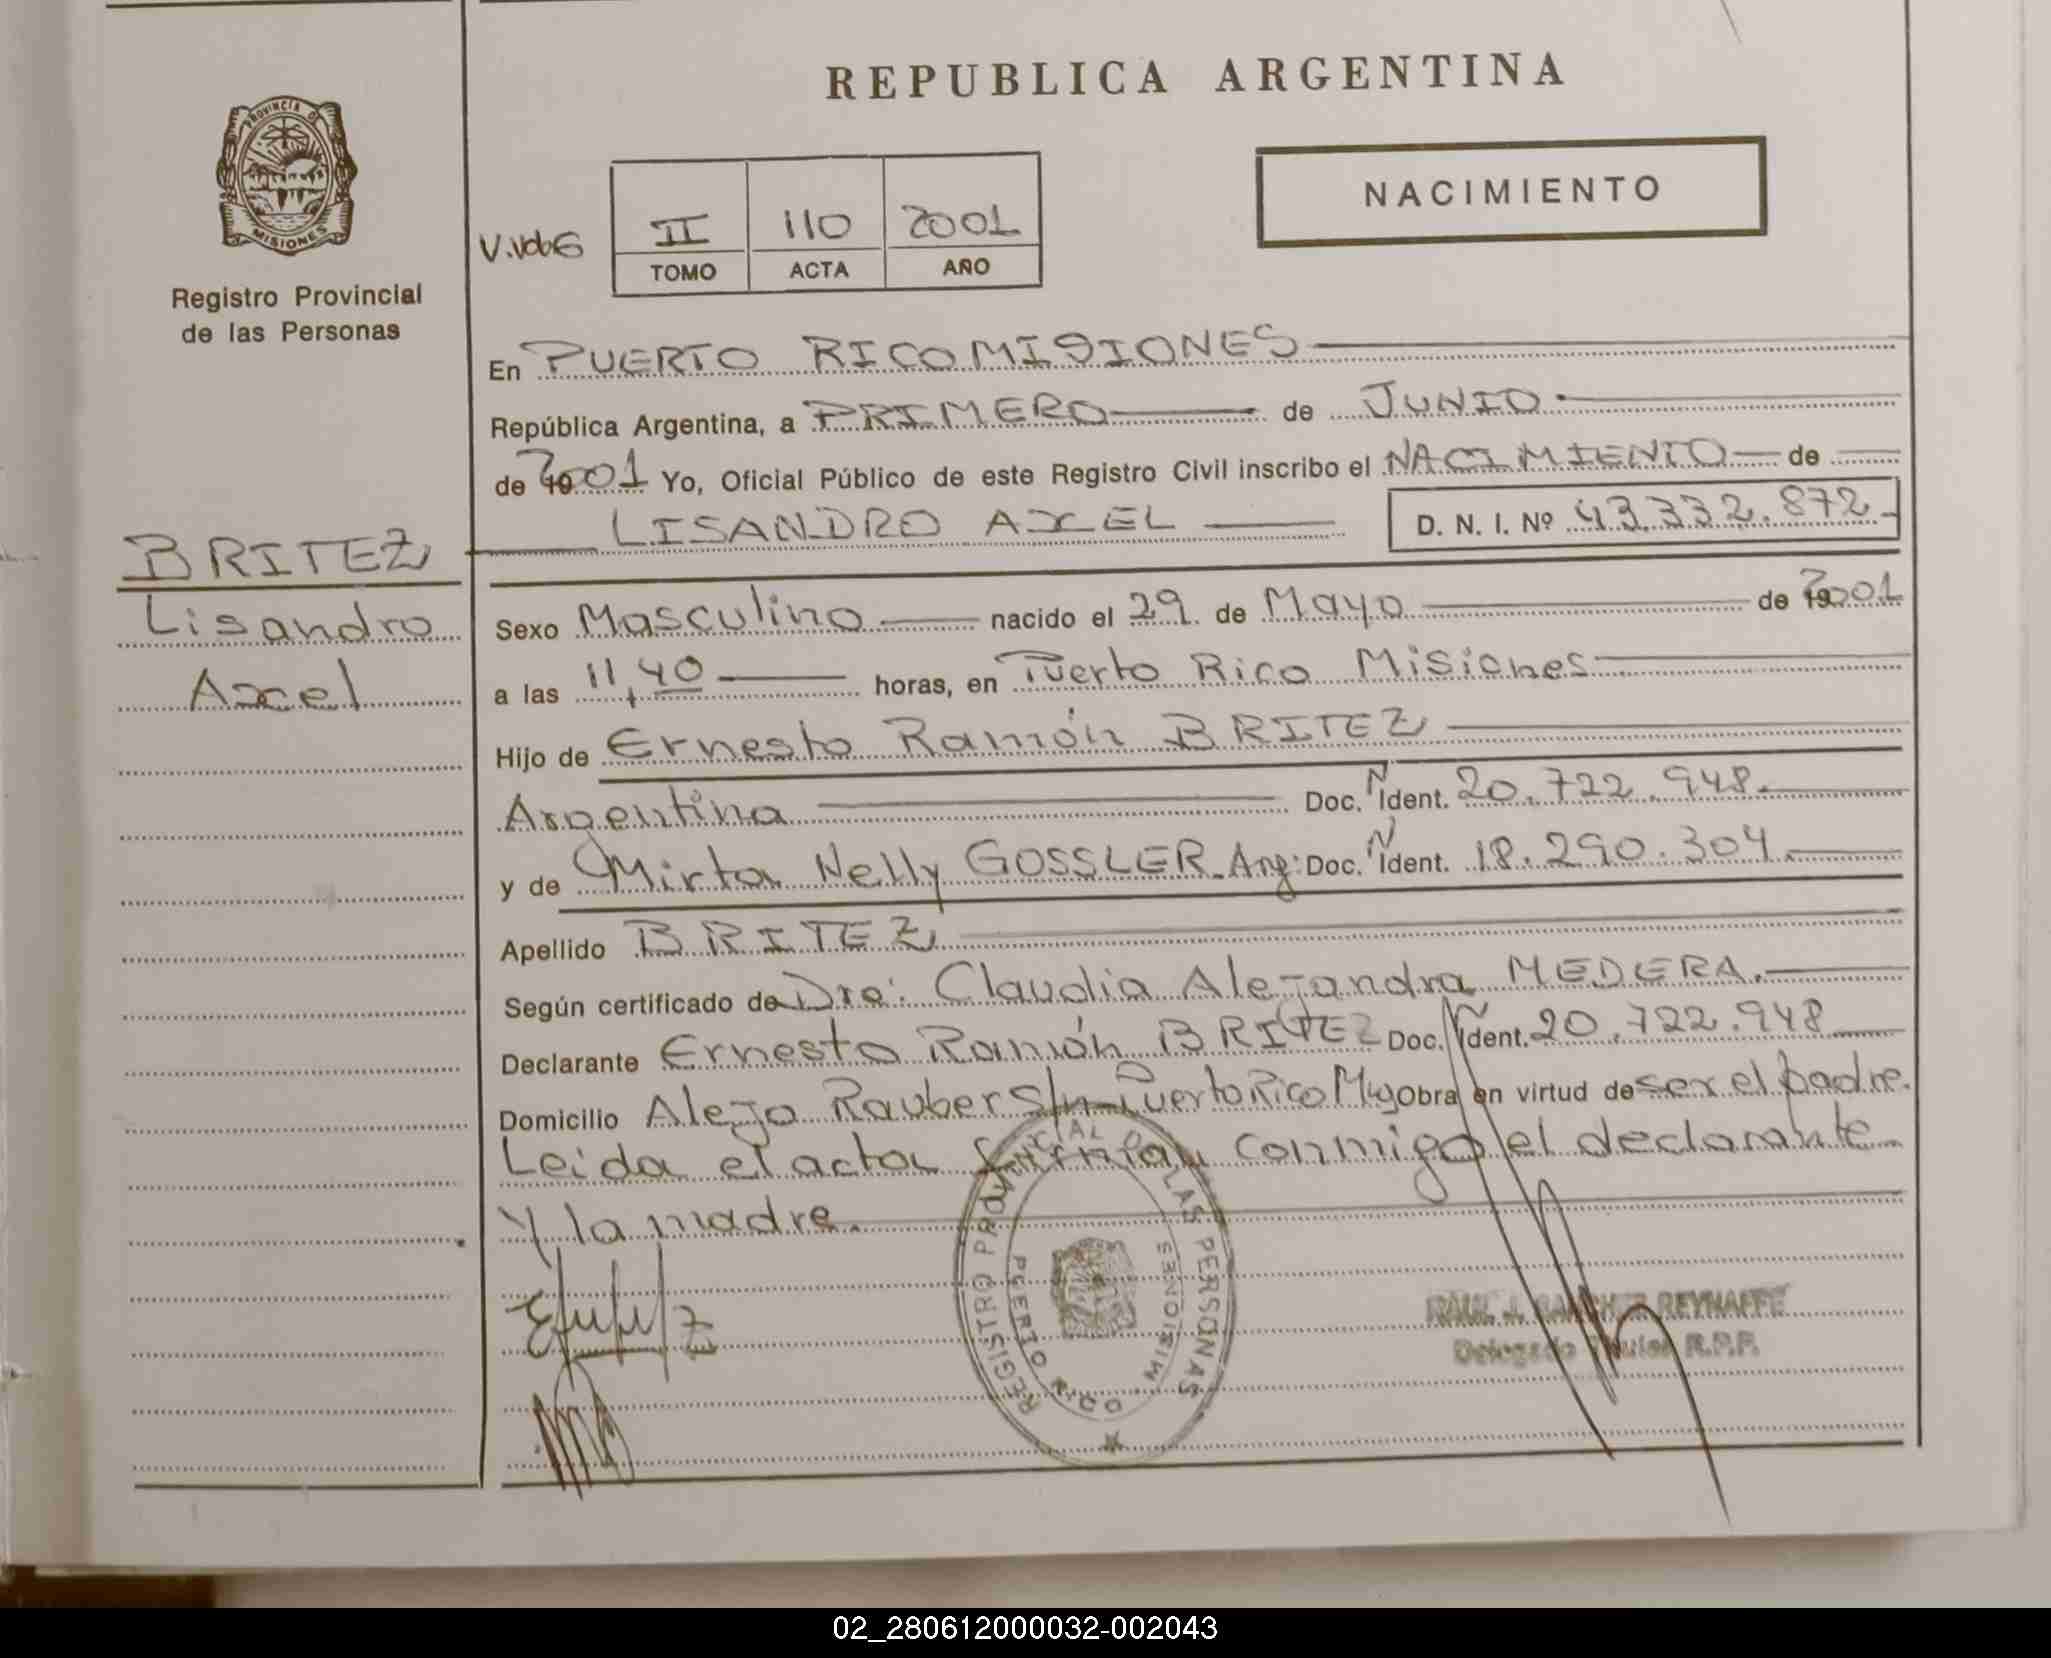 REPUBLICA ARGENTINA
PROVINCIA DE
MISIONES
Registro Provincial
de las Personas
NACIMIENTO
II 110 2001
TOMO ACTA AÑO
En PUERTO RICO MISIONES
República Argentina, a PRIMERO de JUNIO
de 2001 Yo, Oficial Público de este Registro Civil inscribo el NACIMIENTO de
LISANDRO AXEL D. N. I. Nº 43.332.872
BRITEZ
Lisandro
Axel
Sexo Masculino nacido el 29 de Mayo de 2001
a las 11,40 horas, en Puerto Rico Misiones
Hijo de Ernesto Ramón BRITEZ
Argentina Doc. N Ident. 20.722.948.
y de Mirta Nelly GOSSLER Arg: Doc. N Ident. 18.290.304
Apellido BRITEZ
Según certificado de Dra: Claudia Alejandra MEDERA.
Declarante Ernesto Ramón BRITEZ Doc. N Ident. 20.722.948
Domicilio Alejo Rauber S/n Puerto Rico Obra en virtud de ser el padre.
Leida el acta firman conmigo el declarante
Y la madre.
REGISTRO PROVINCIAL DE LAS PERSONAS
PUERTO RICO MISIONES
RAUL J. REYNAFFE
Delegado Titular R.P.P.
02_280612000032-002043